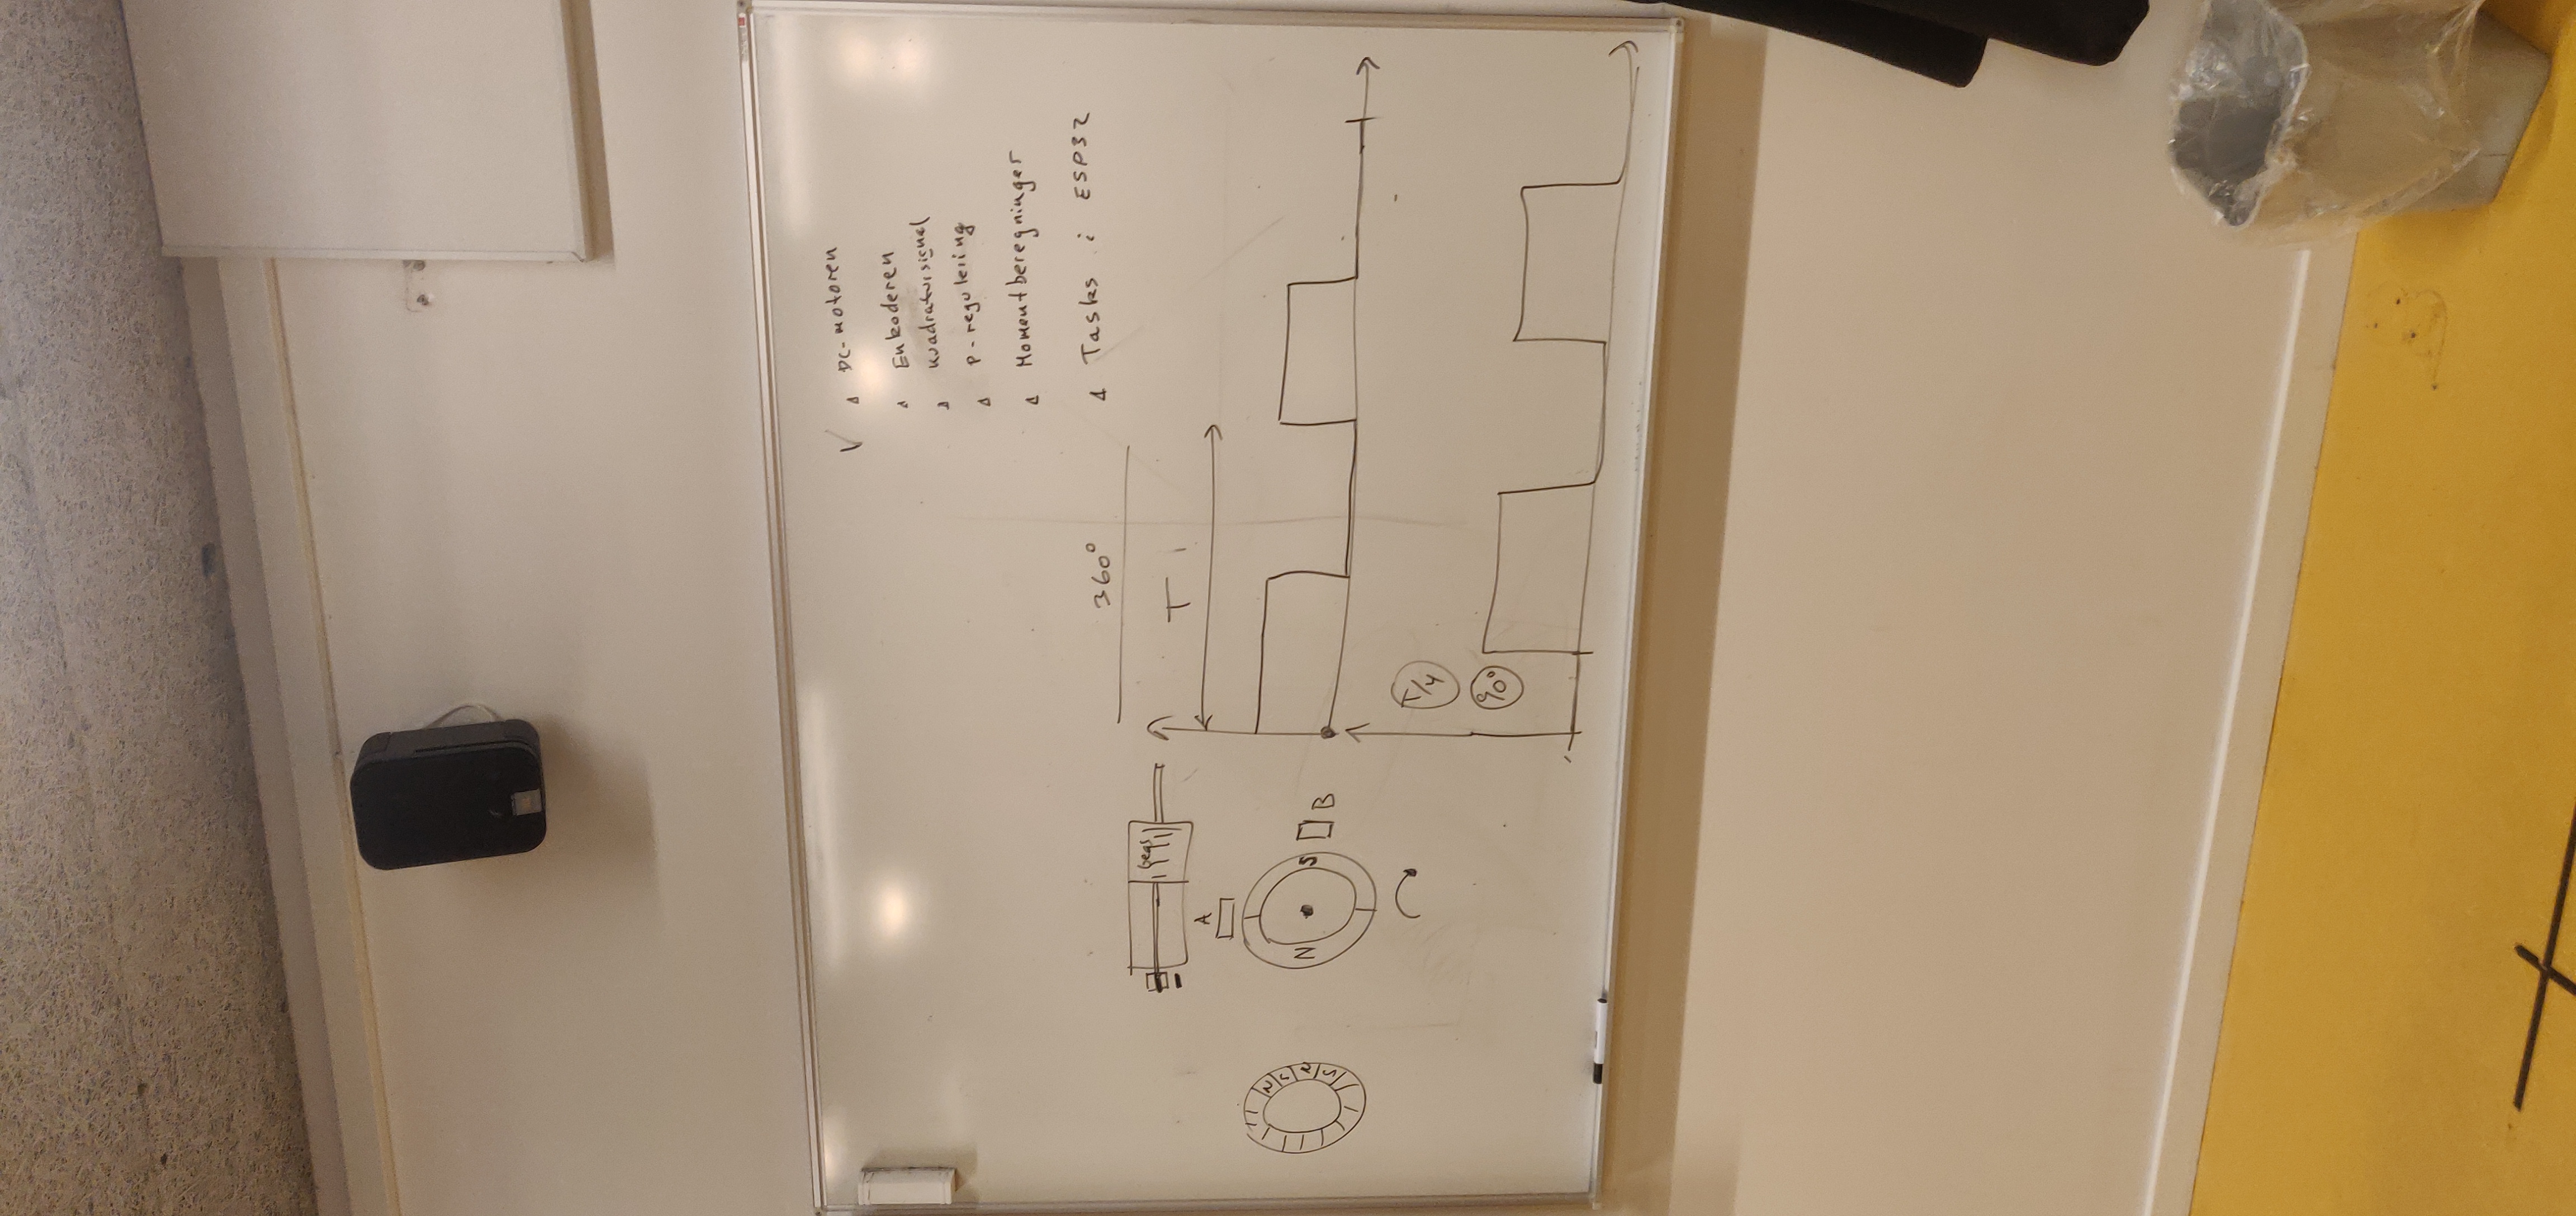 DC-motoren
Enkoderen
Kvadratursignal
P-regulering
Momentberegninger
Tasks i ESP32
360°
T
A
N
S
B
N
S
N
S
T/4
90°